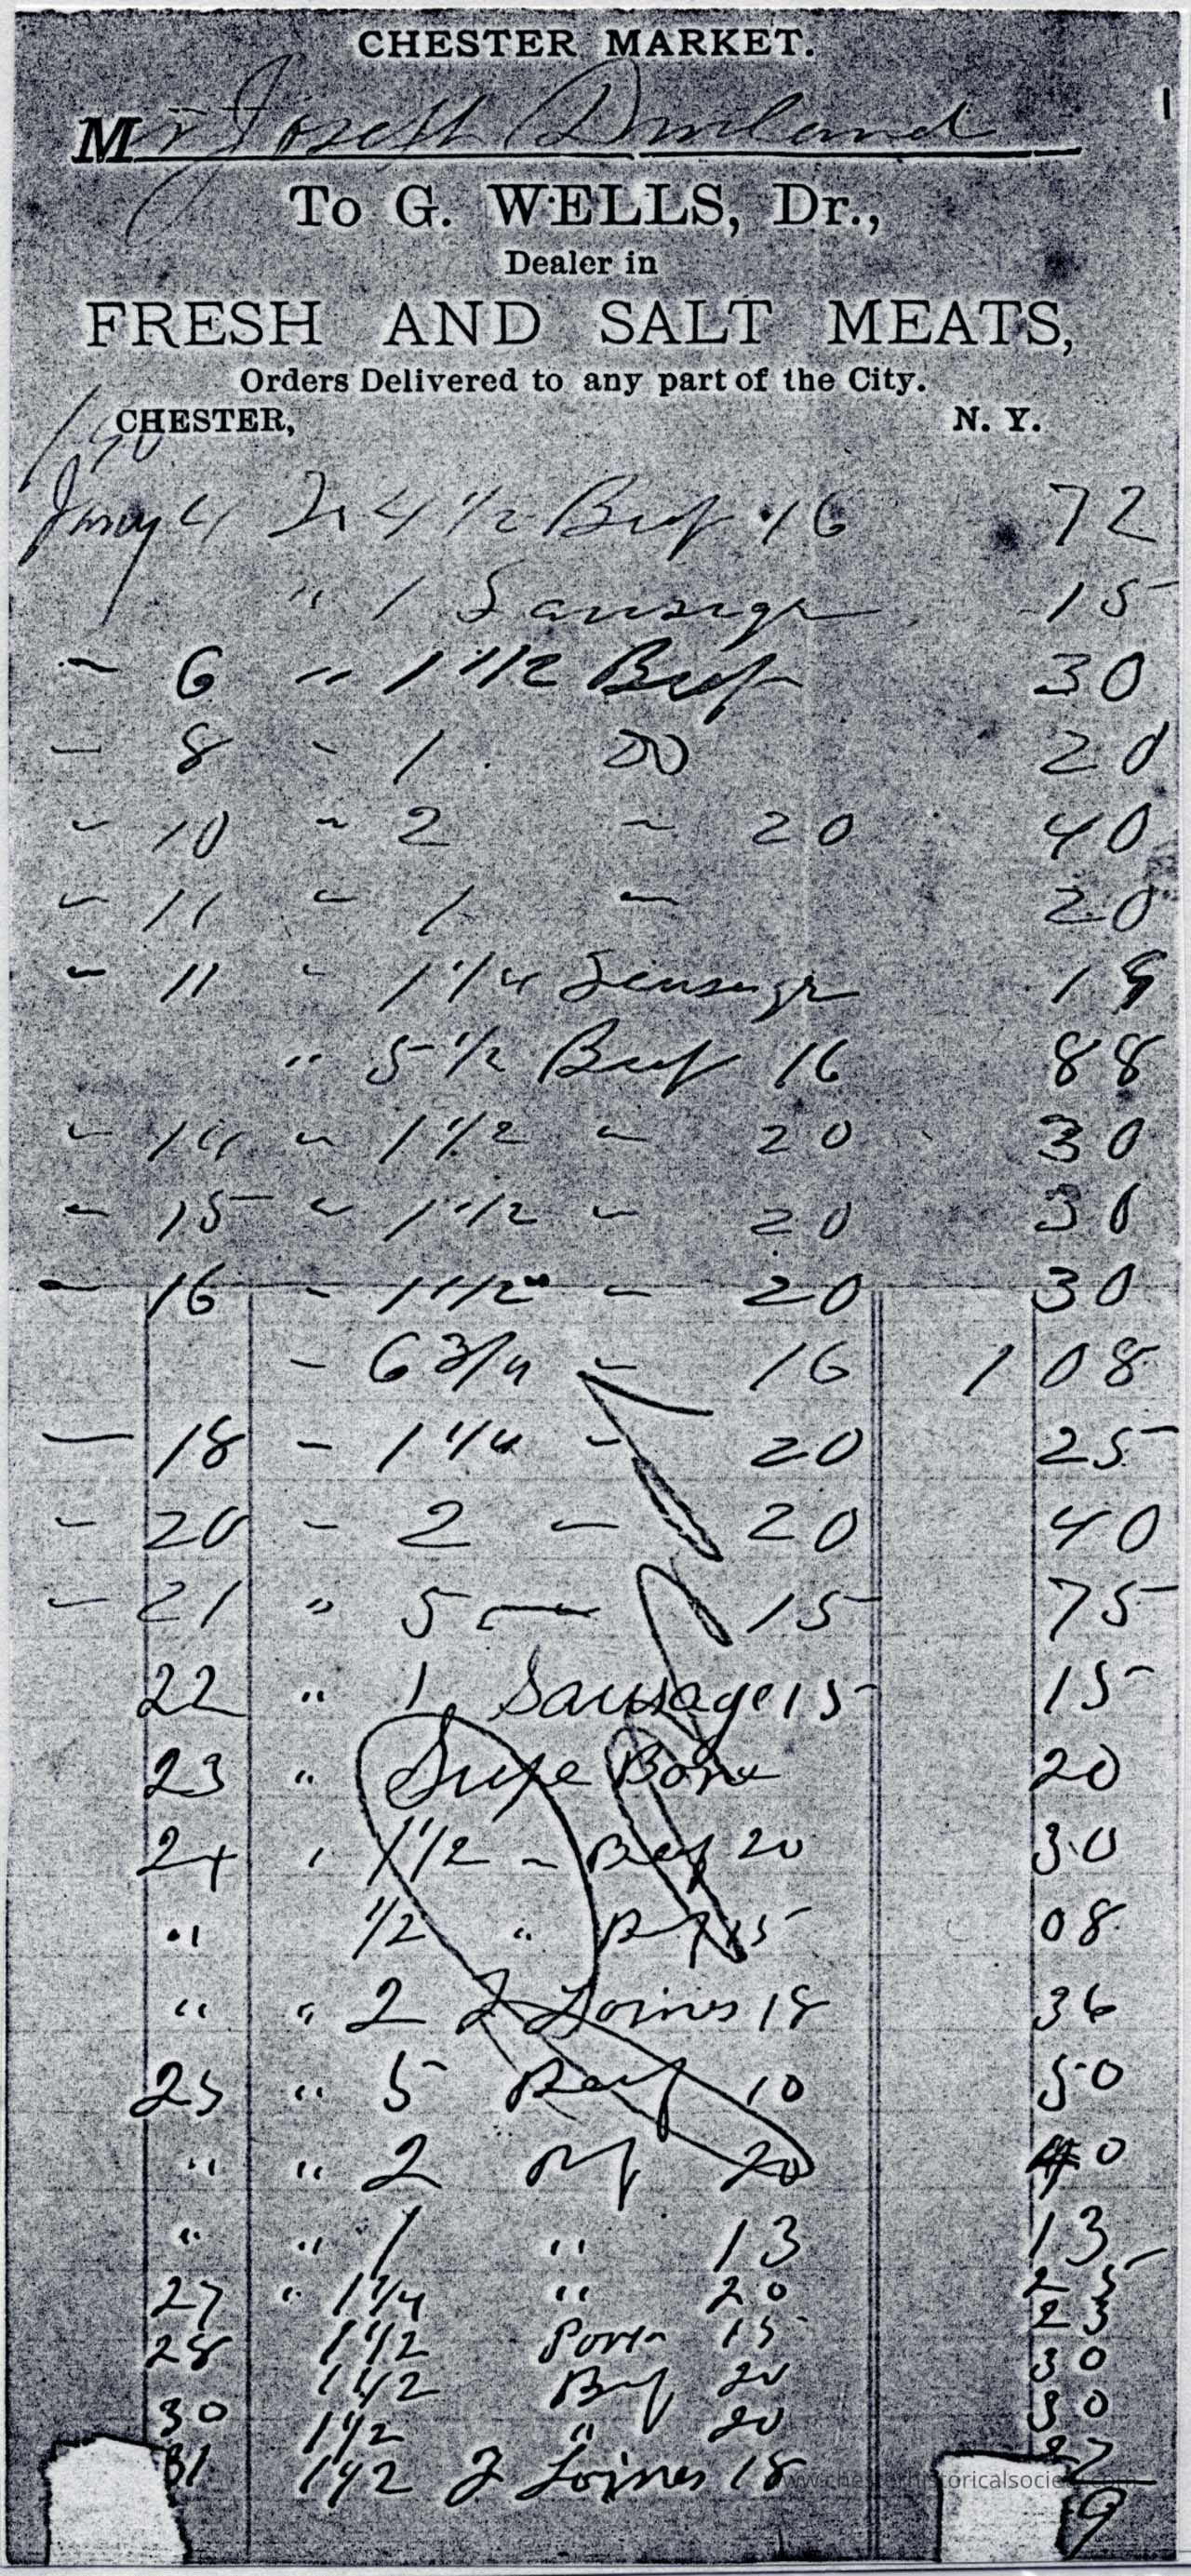 CHESTER MARKET.
Mr Joseph Durland
To G. WELLS, Dr.,
Dealer in
FRESH AND SALT MEATS,
Orders Delivered to any part of the City.
CHESTER, N. Y.
Jany 4 To 4 1/2 Beef 16 72
" 1 Sausage 15
" 6 " 1 1/2 Beef 30
" 8 " 1 Do 20
" 10 " 2 " 20 40
" 11 " 1 " 20
" 11 " 1 1/4 Sausage 19
" 5 1/2 Beef 16 88
" 14 " 1 1/2 " 20 30
" 15 " 1 1/2 " 20 30
" 16 " 1 1/2 " 20 30
" 6 3/4 " 16 1 08
" 18 " 1 1/4 " 20 25
" 20 " 2 " 20 40
" 21 " 5 " 15 75
22 " 1 Sausage 15 15
23 " Bone 20
24 " 1 1/2 " Beef 20 30
" 1/2 " 15 08
" " 2 Loines 18 36
25 " 5 Beef 10 50
" " 2 20 40
" " 1 " 13 13
27 " 1 1/4 " 20 25
28 1 1/2 Pork 15 23
1 1/2 Beef 20 30
30 1 1/2 " 20 30
31 1 1/2 Loines 18 27
9
www.chesterhistoricalsociety.com